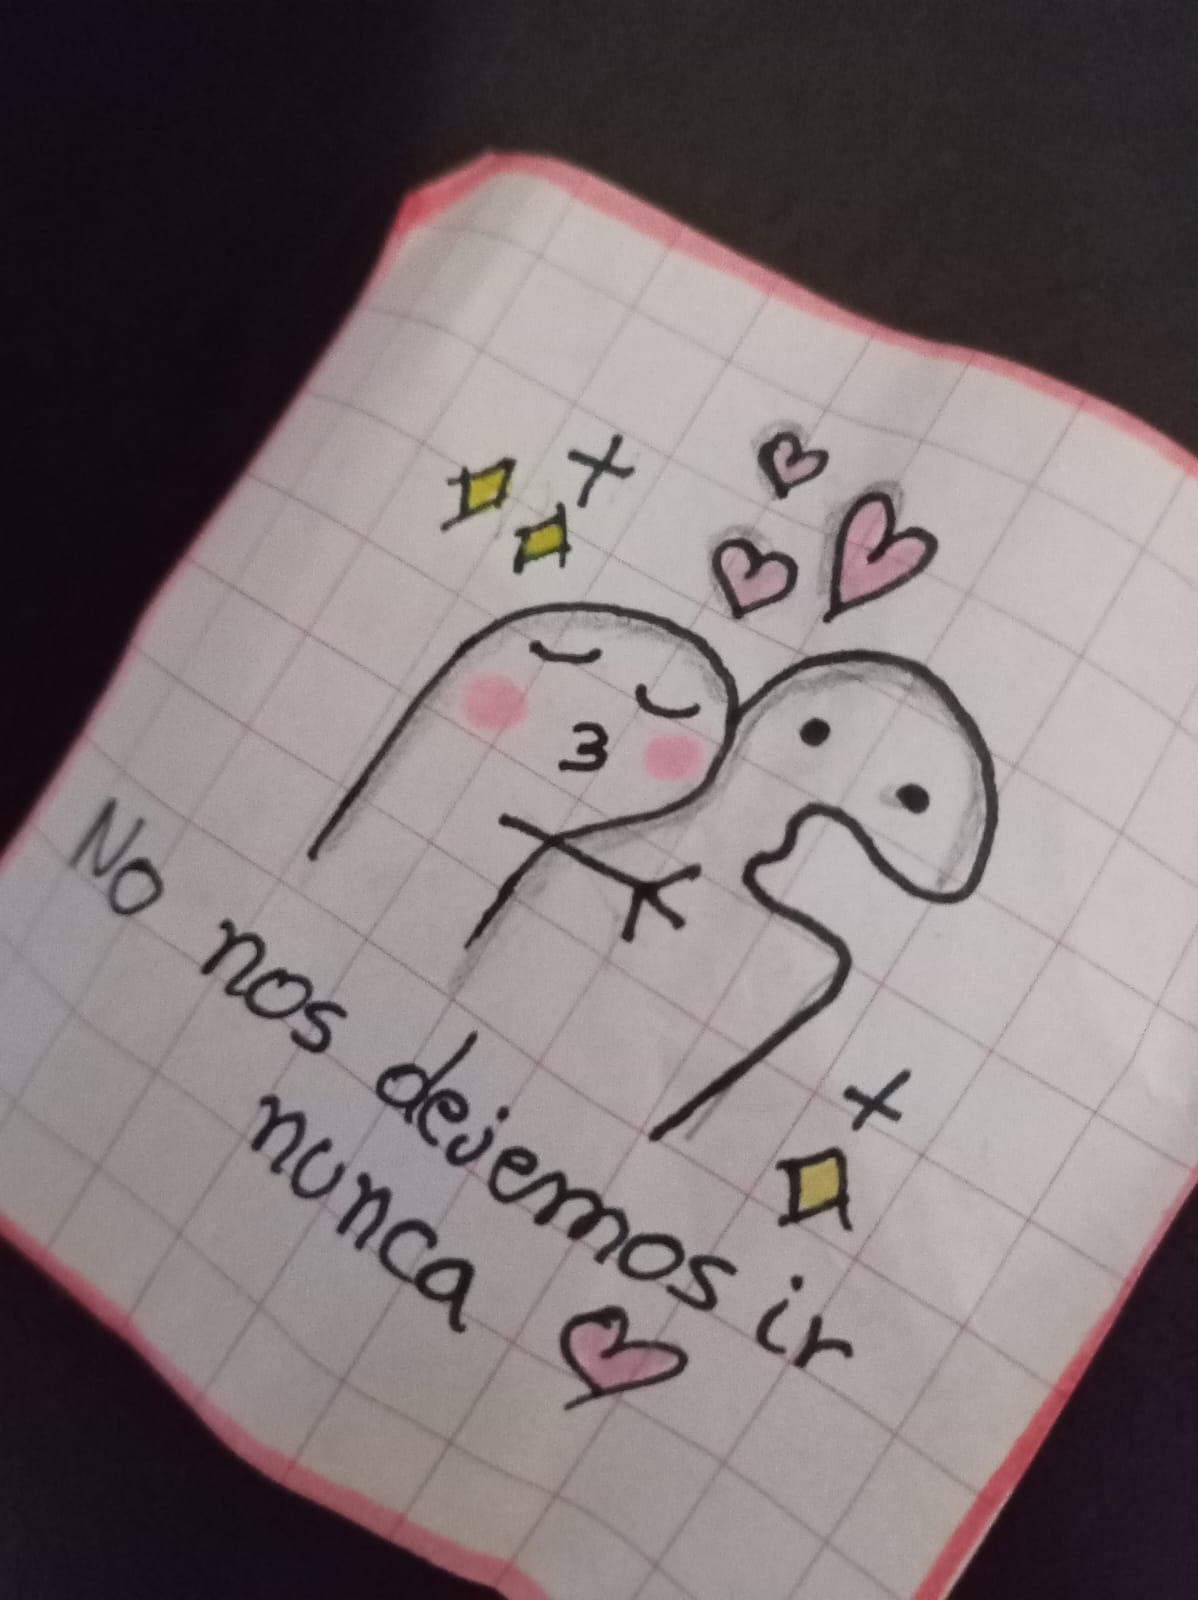 No nos dejemos ir
nunca